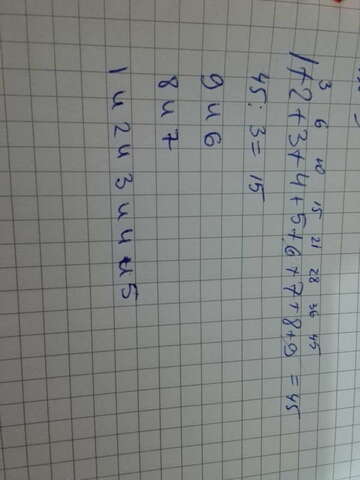 3 6 10 15 21 28 36 45
1+2+3+4+5+6+7+8+9=45
45:3=15
9 и 6
8 и 7
1 и 2 и 3 и 4 и 5